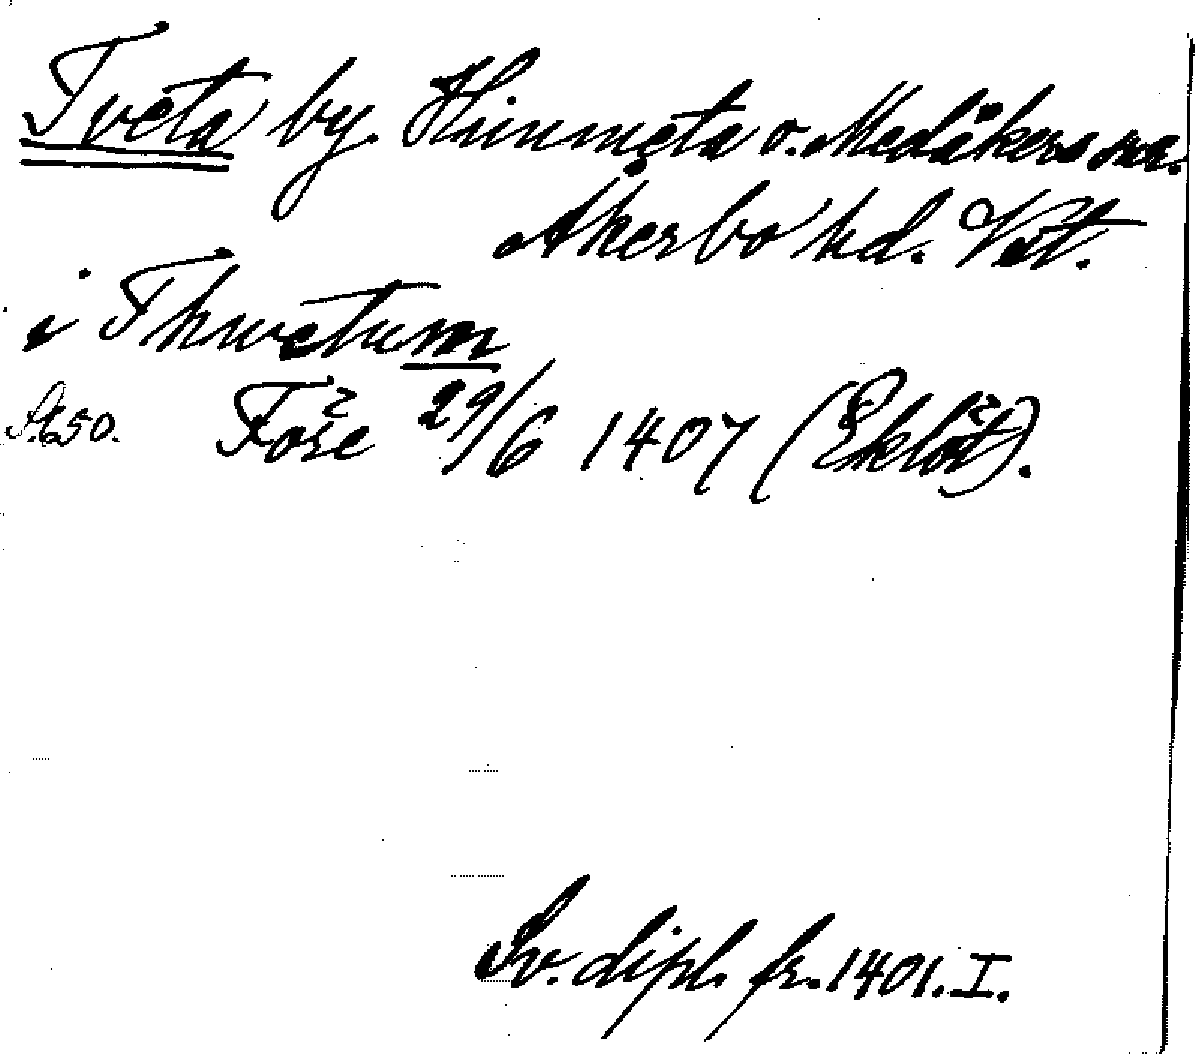 Tveta by. Himmeta o. Medåkers snr.
Åkerbo hd. Vst.
i Thwetum
S. 650. Fors 29/6 1407 (Eklöf).
Sv. dipl. fr. 1401. I.